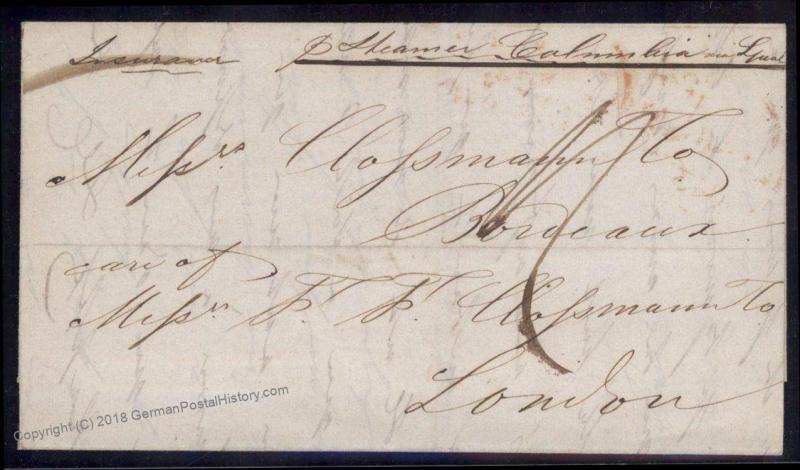 Insurance ℔ Steamer Columbia
Messrs Clossmann & Co
Bordeaux
care of
Messrs F. F. Clossmann & Co
London
Copyright (C) 2018 GermanPostalHistory.com